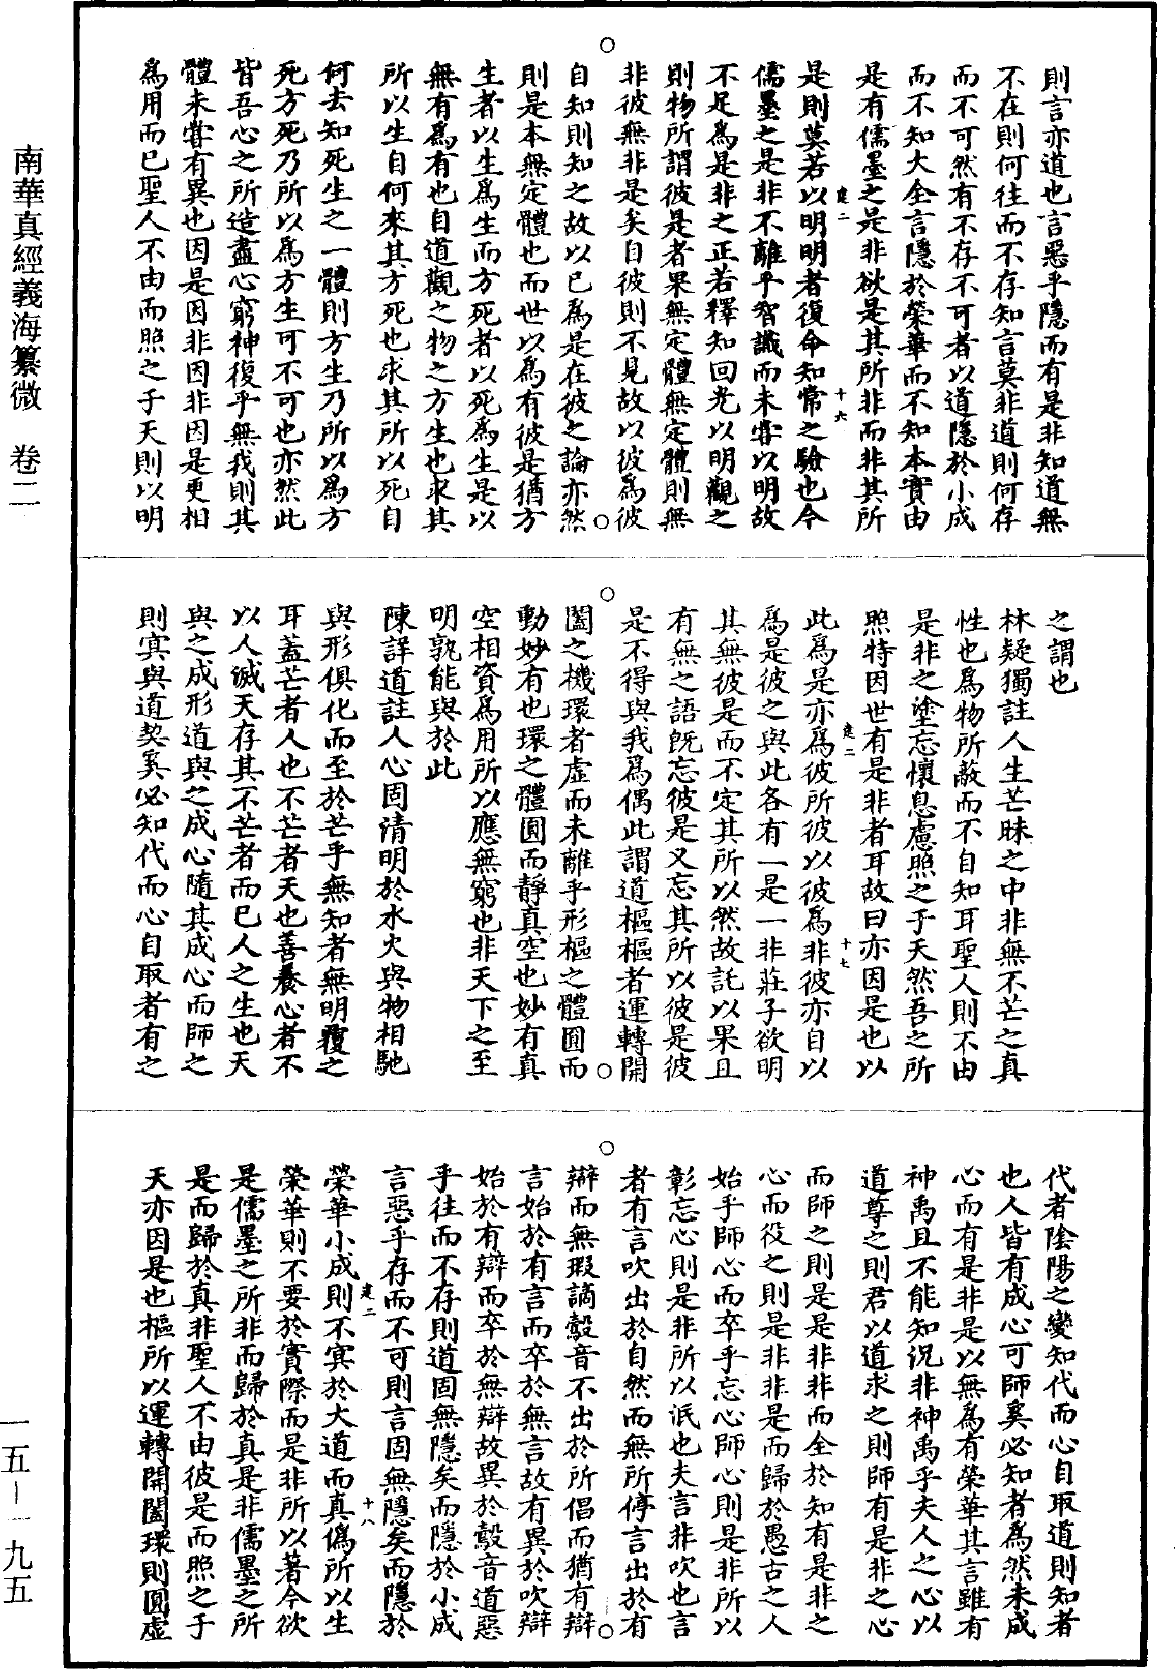 南華真經義海纂微　卷二
則言亦道也言惡乎隱而有是非知道無
不在則何往而不存知言莫非道則何存
而不可然有不存不可者以道隱於小成
而不知大全言隱於榮華而不知本實由
是有儒墨之是非欲是其所非而非其所
是則莫若以明明者復命知常之驗也今
建二
十六
儒墨之是非不離乎智識而未甞以明故
不足為是非之正若釋知回光以明觀之
則物所謂彼是者果無定體無定體則無
非彼無非是矣自彼則不見故以彼為彼
自知則知之故以已為是在彼之論亦然
則是本無定體也而世以為有彼是猶方
生者以生為生而方死者以死為生是以
無有為有也自道觀之物之方生也求其
所以生自何來其方死也求其所以死自
何去知死生之一體則方生乃所以為方
死方死乃所以為方生可不可也亦然此
皆吾心之所造盡心窮神復乎無我則其
體未甞有異也因是因非因非因是更相
為用而已聖人不由而照之于天則以明
之謂也
林疑獨註人生芒昧之中非無不芒之真
性也為物所蔽而不自知耳聖人則不由
是非之塗忘懷息慮照之于天然吾之所
照特因世有是非者耳故曰亦因是也以
建二
十七
此為是亦為彼所彼以彼為非彼亦自以
為是彼之與此各有一是一非莊子欲明
其無彼是而不定其所以然故託以果且
有無之語既忘彼是又忘其所以彼是彼
是不得與我為偶此謂道樞樞者運轉開
闔之機環者虛而未離乎形樞之體圓而
動妙有也環之體圓而靜真空也妙有真
空相資為用所以應無窮也非天下之至
明孰能與於此
陳詳道註人心固清明於水火與物相馳
與形俱化而至於芒乎無知者無明覆之
耳蓋芒者人也不芒者天也善養心者不
以人滅天存其不芒者而已人之生也天
與之成形道與之成心隨其成心而師之
則冥與道契奚必知代而心自取者有之
代者陰陽之變知代而心自取道則知者
也人皆有成心可師奚必知者為然未成
心而有是非是以無為有榮華其言雖有
神禹且不能知況非神禹乎夫人之心以
道尊之則君以道求之則師有是非之心
而師之則是是非非而全於知有是非之
心而役之則是非非是而歸於愚古之人
始乎師心而卒乎忘心師心則是非所以
彰忘心則是非所以泯也夫言非吹也言
者有言吹出於自然而無所停言出於有
辯而無瑕謫鷇音不出於所倡而猶有辯
言始於有言而卒於無言故有異於吹辯
始於有辯而卒於無辯故異於鷇音道惡
乎往而不存則道固無隱矣而隱於小成
言惡乎存而不可則言固無隱矣而隱於
建二
十八
榮華小成則不冥於大道而真偽所以生
榮華則不要於實際而是非所以著今欲
是儒墨之所非而歸於真是非儒墨之所
是而歸於真非聖人不由彼是而照之于
天亦因是也樞所以運轉開闔環則圓虛
一五－一九五